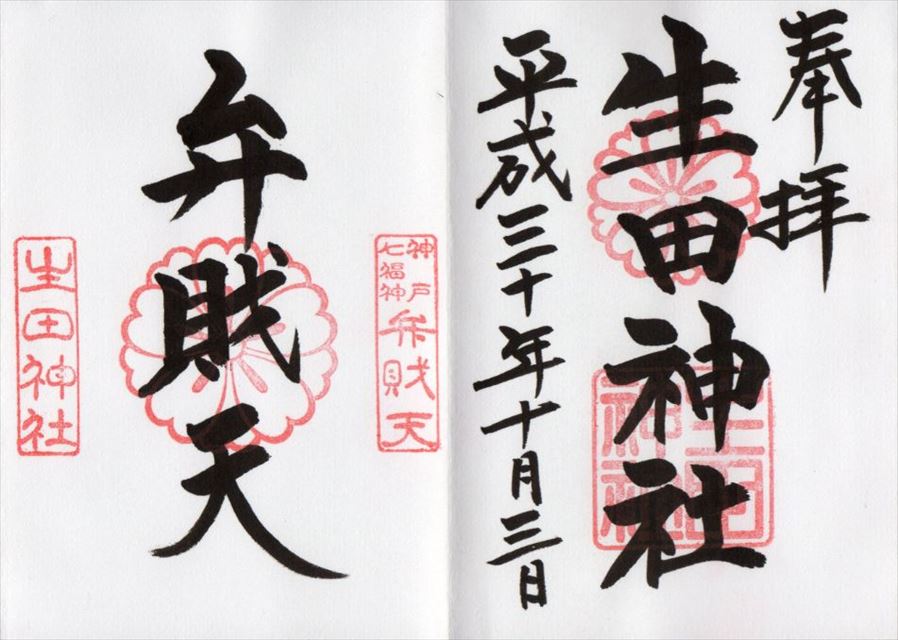 奉拝
生田神社
生田神社
平成三十年十月三日
神戸
七福神
弁財天
弁財天
生田神社